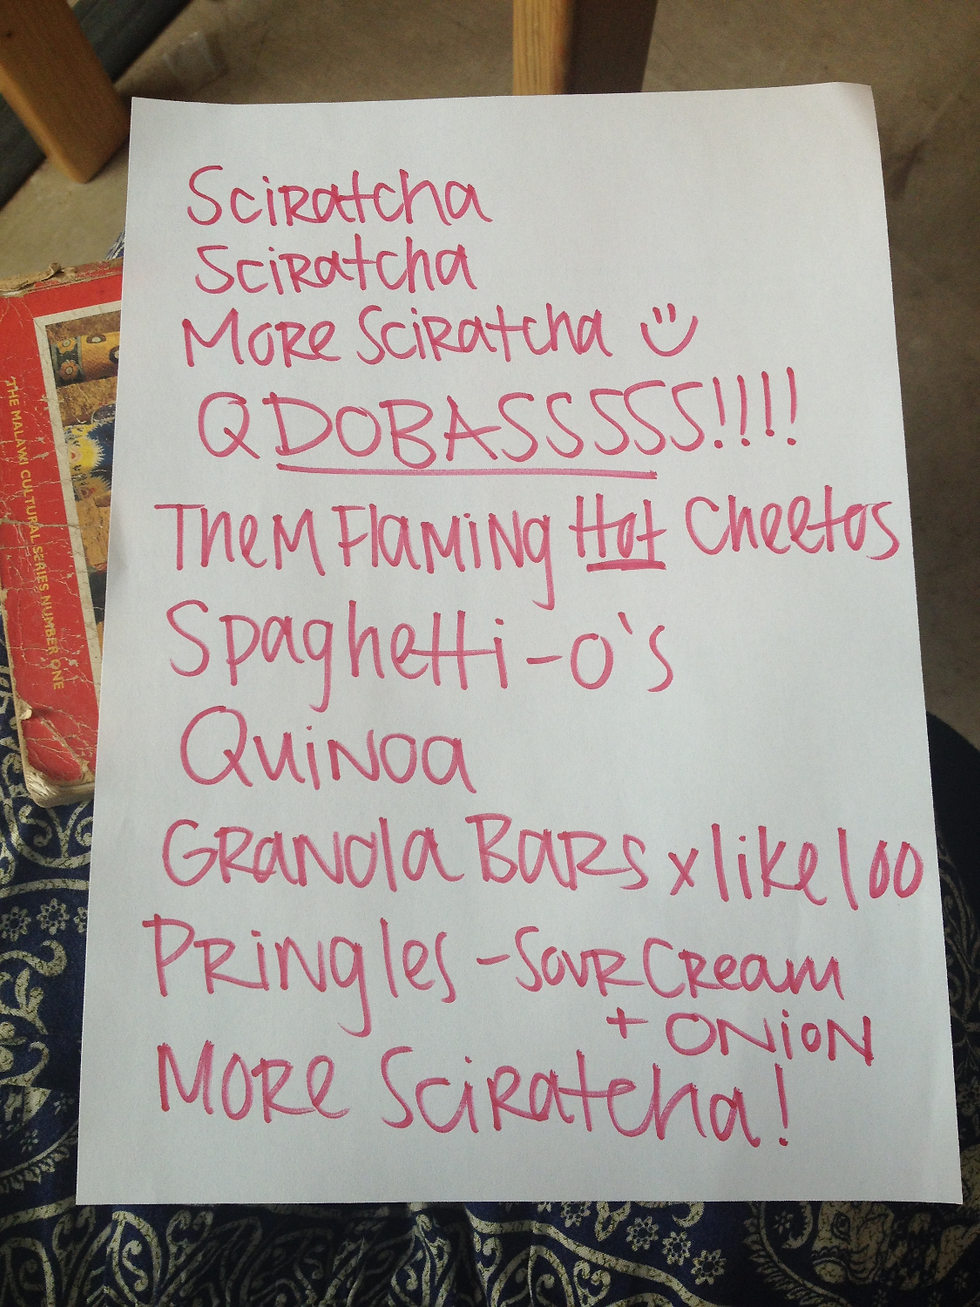 Sciratcha
Sciratcha
More Sciratcha
QDOBASSSSS!!!!
Them Flaming Hot Cheetos
Spaghetti-o's
Quinoa
Granola Bars x like 100
Pringles - Sour Cream
+ Onion
More Sciratcha!
THE MALAWI CULTURAL SERIES NUMBER ONE